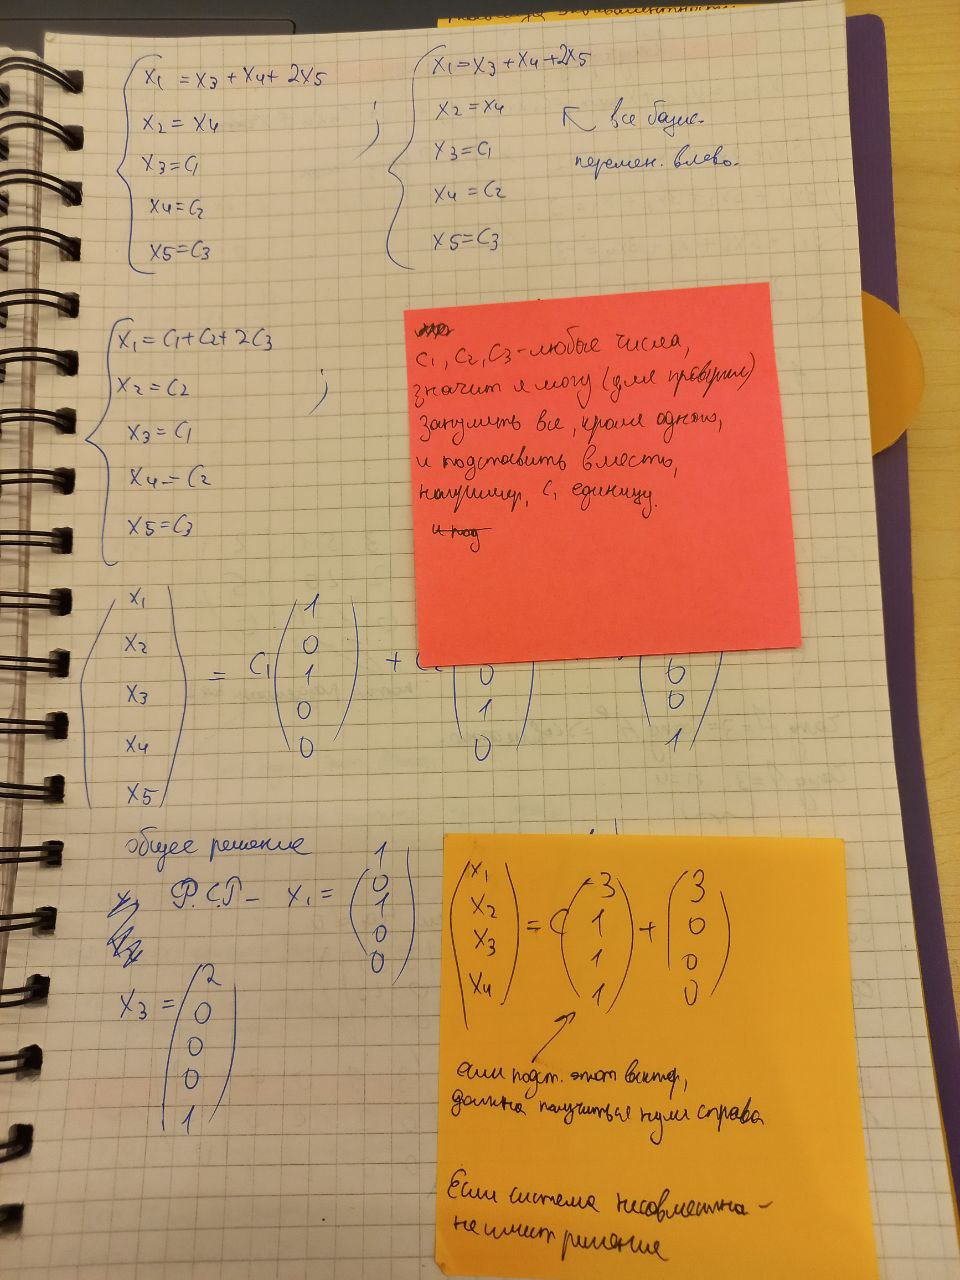 x₁ = x₃ + x₄ + 2x₅
x₂ = x₄
x₃ = C₁
x₄ = C₂
x₅ = C₃
;
x₁ = x₃ + x₄ + 2x₅
x₂ = x₄
x₃ = C₁
x₄ = C₂
x₅ = C₃
↖ все базис.
перемен. влево.
x₁ = C₁ + C₂ + 2C₃
x₂ = C₂
x₃ = C₁
x₄ = C₂
x₅ = C₃
;
C₁, C₂, C₃ - любые числа,
значит я могу (для проверки)
занулить все, кроме одного,
и подставить вместо,
например, C₁ единицу.
и под
x₁
x₂
x₃
x₄
x₅
= C₁
1
0
1
0
0
+ C₂
0
1
0
0
0
1
общее решение
Ф.С.Р - x₁ =
1
0
1
0
0
x₃ =
2
0
0
0
1
x₁
x₂
x₃
x₄
= C
-3
1
1
1
+
3
0
0
0
если подст. этот вектор,
должна получиться нули справа
Если система несовместна -
не имеет решение